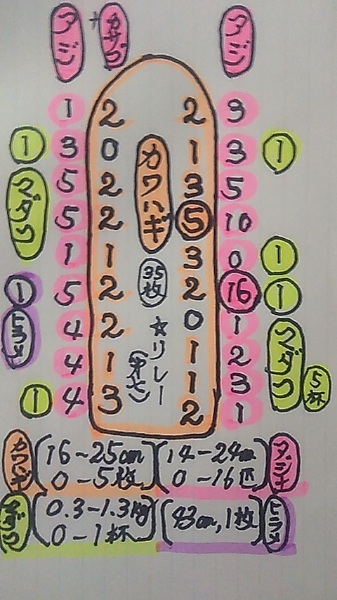 アジ カサゴ アジ
1 2 2 9
1 3 0 1 3 1
マダコ 5 2 カワハギ 3 5
5 2 5 10
1 1 3 0 1
1 5 2 35枚 2 16 1
ヒラメ 4 2 ☆リレー 0 1 マダコ
4 1 1 2
1 4 3 1 3 5杯
2 1
カワハギ (16~25cm (14~24cm アジ
0~5枚) 0~16匹)
マダコ (0.3~1.3kg (43cm, 1枚) ヒラメ
0~1杯)